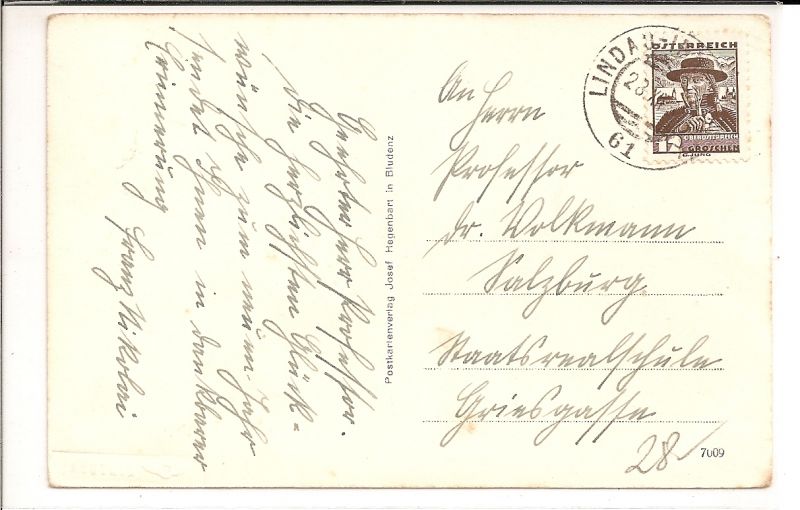 Geehrter Herr Professor.
Die herzlichsten Glück-
wünsche zum neuen Jahr
sendet Ihnen in dankbarer
Erinnerung
Franz Nikolai
Postkartenverlag Josef Hegenbart in Bludenz
An
Herrn
Professor
Dr. Volkmann
Salzburg
Staatsrealschule
Griesgasse
28
7009
LINDAU-
28.
61
ÖSTERREICH
OBERÖSTERREICH
12 GROSCHEN
G.JUNG